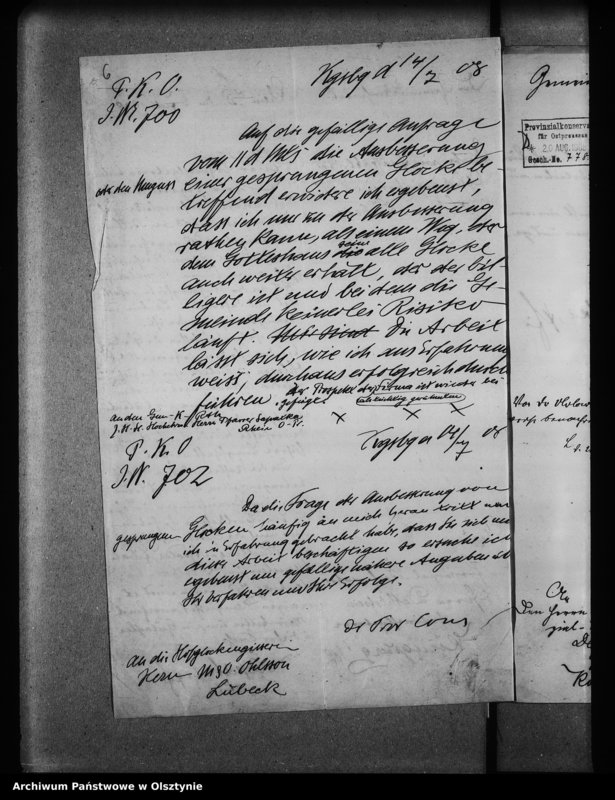 6
P. K. O.
J. Nr. 700
Kgsbg d 14/7 08
Auf die gefällige Anfrage
vom 11 d Mts die Ausbesserung
einer gesprungenen Glocke be-
treffend erwidere ich ergebenst,
dass ich nur zu der Ausbesserung
rathen kann, als einem Weg, der
dem Gotteshaus seine alte Glocke
auch weiter erhält, der der bil-
ligere ist und bei dem die Ge-
meinde keinerlei Risiko
läuft. Die Arbeit
lässt sich, wie ich aus Erfahrung
weiss, durchaus erfolgreich durch-
führen. Der Prospekt der Firma ist wieder bei-
gefügt
an den
J. Hochehrw Herrn Pfarrer
Rhein O-Pr.
P. K. O
J. Nr. 702
Kgsbg d 14/7 08
Da die Frage der Ausbesserung von
gesprungenen Glocken häufig an mich heran tritt und
ich in Erfahrung gebracht habe, dass Sie sich mit
dieser Arbeit beschäftigen so ersuche ich
ergebenst um gefällige nähere Angaben üb
Ihr Verfahren und Ihre Erfolge.
Der Prov Cons
An die Hofglockengiesserei
Herrn M & O. Ohlsson
Lübeck
Provinzialkonserva
für Ostpreussen
20 AUG. 1908
Gesch.-No. 778
Von
An
den Herrn
Archiwum Państwowe w Olsztynie